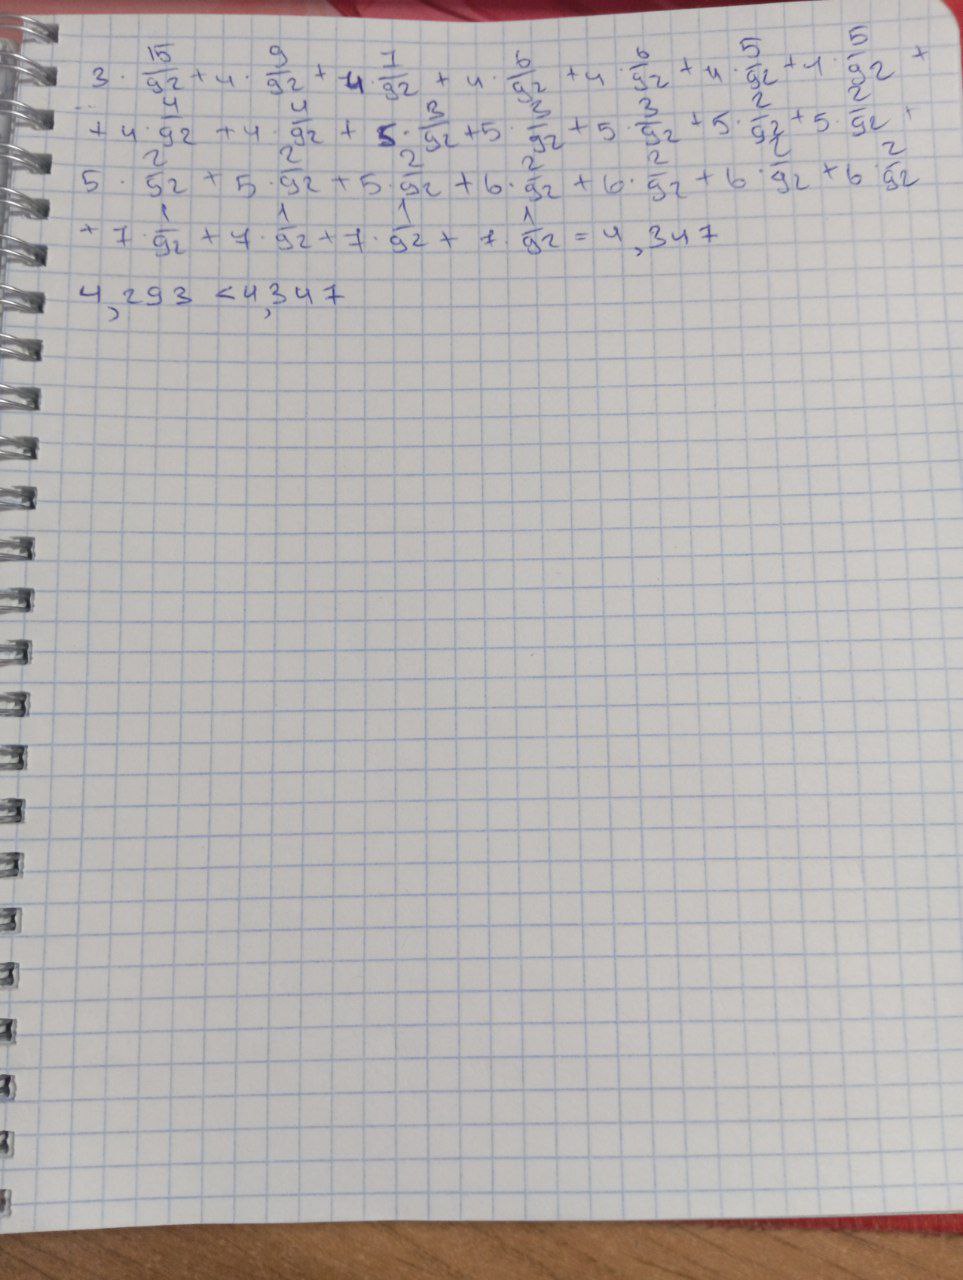 3 · 15/92 + 4 · 9/92 + 4 · 7/92 + 4 · 6/92 + 4 · 6/92 + 4 · 5/92 + 4 · 5/92 +
+ 4 · 4/92 + 4 · 4/92 + 5 · 3/92 + 5 · 3/92 + 5 · 3/92 + 5 · 2/92 + 5 · 2/92 +
5 · 2/52 + 5 · 2/92 + 5 · 2/92 + 6 · 2/92 + 6 · 2/92 + 6 · 2/92 + 6 · 2/92
+ 7 · 1/92 + 7 · 1/92 + 7 · 1/92 + 7 · 1/92 = 4,347
4,293 < 4,347